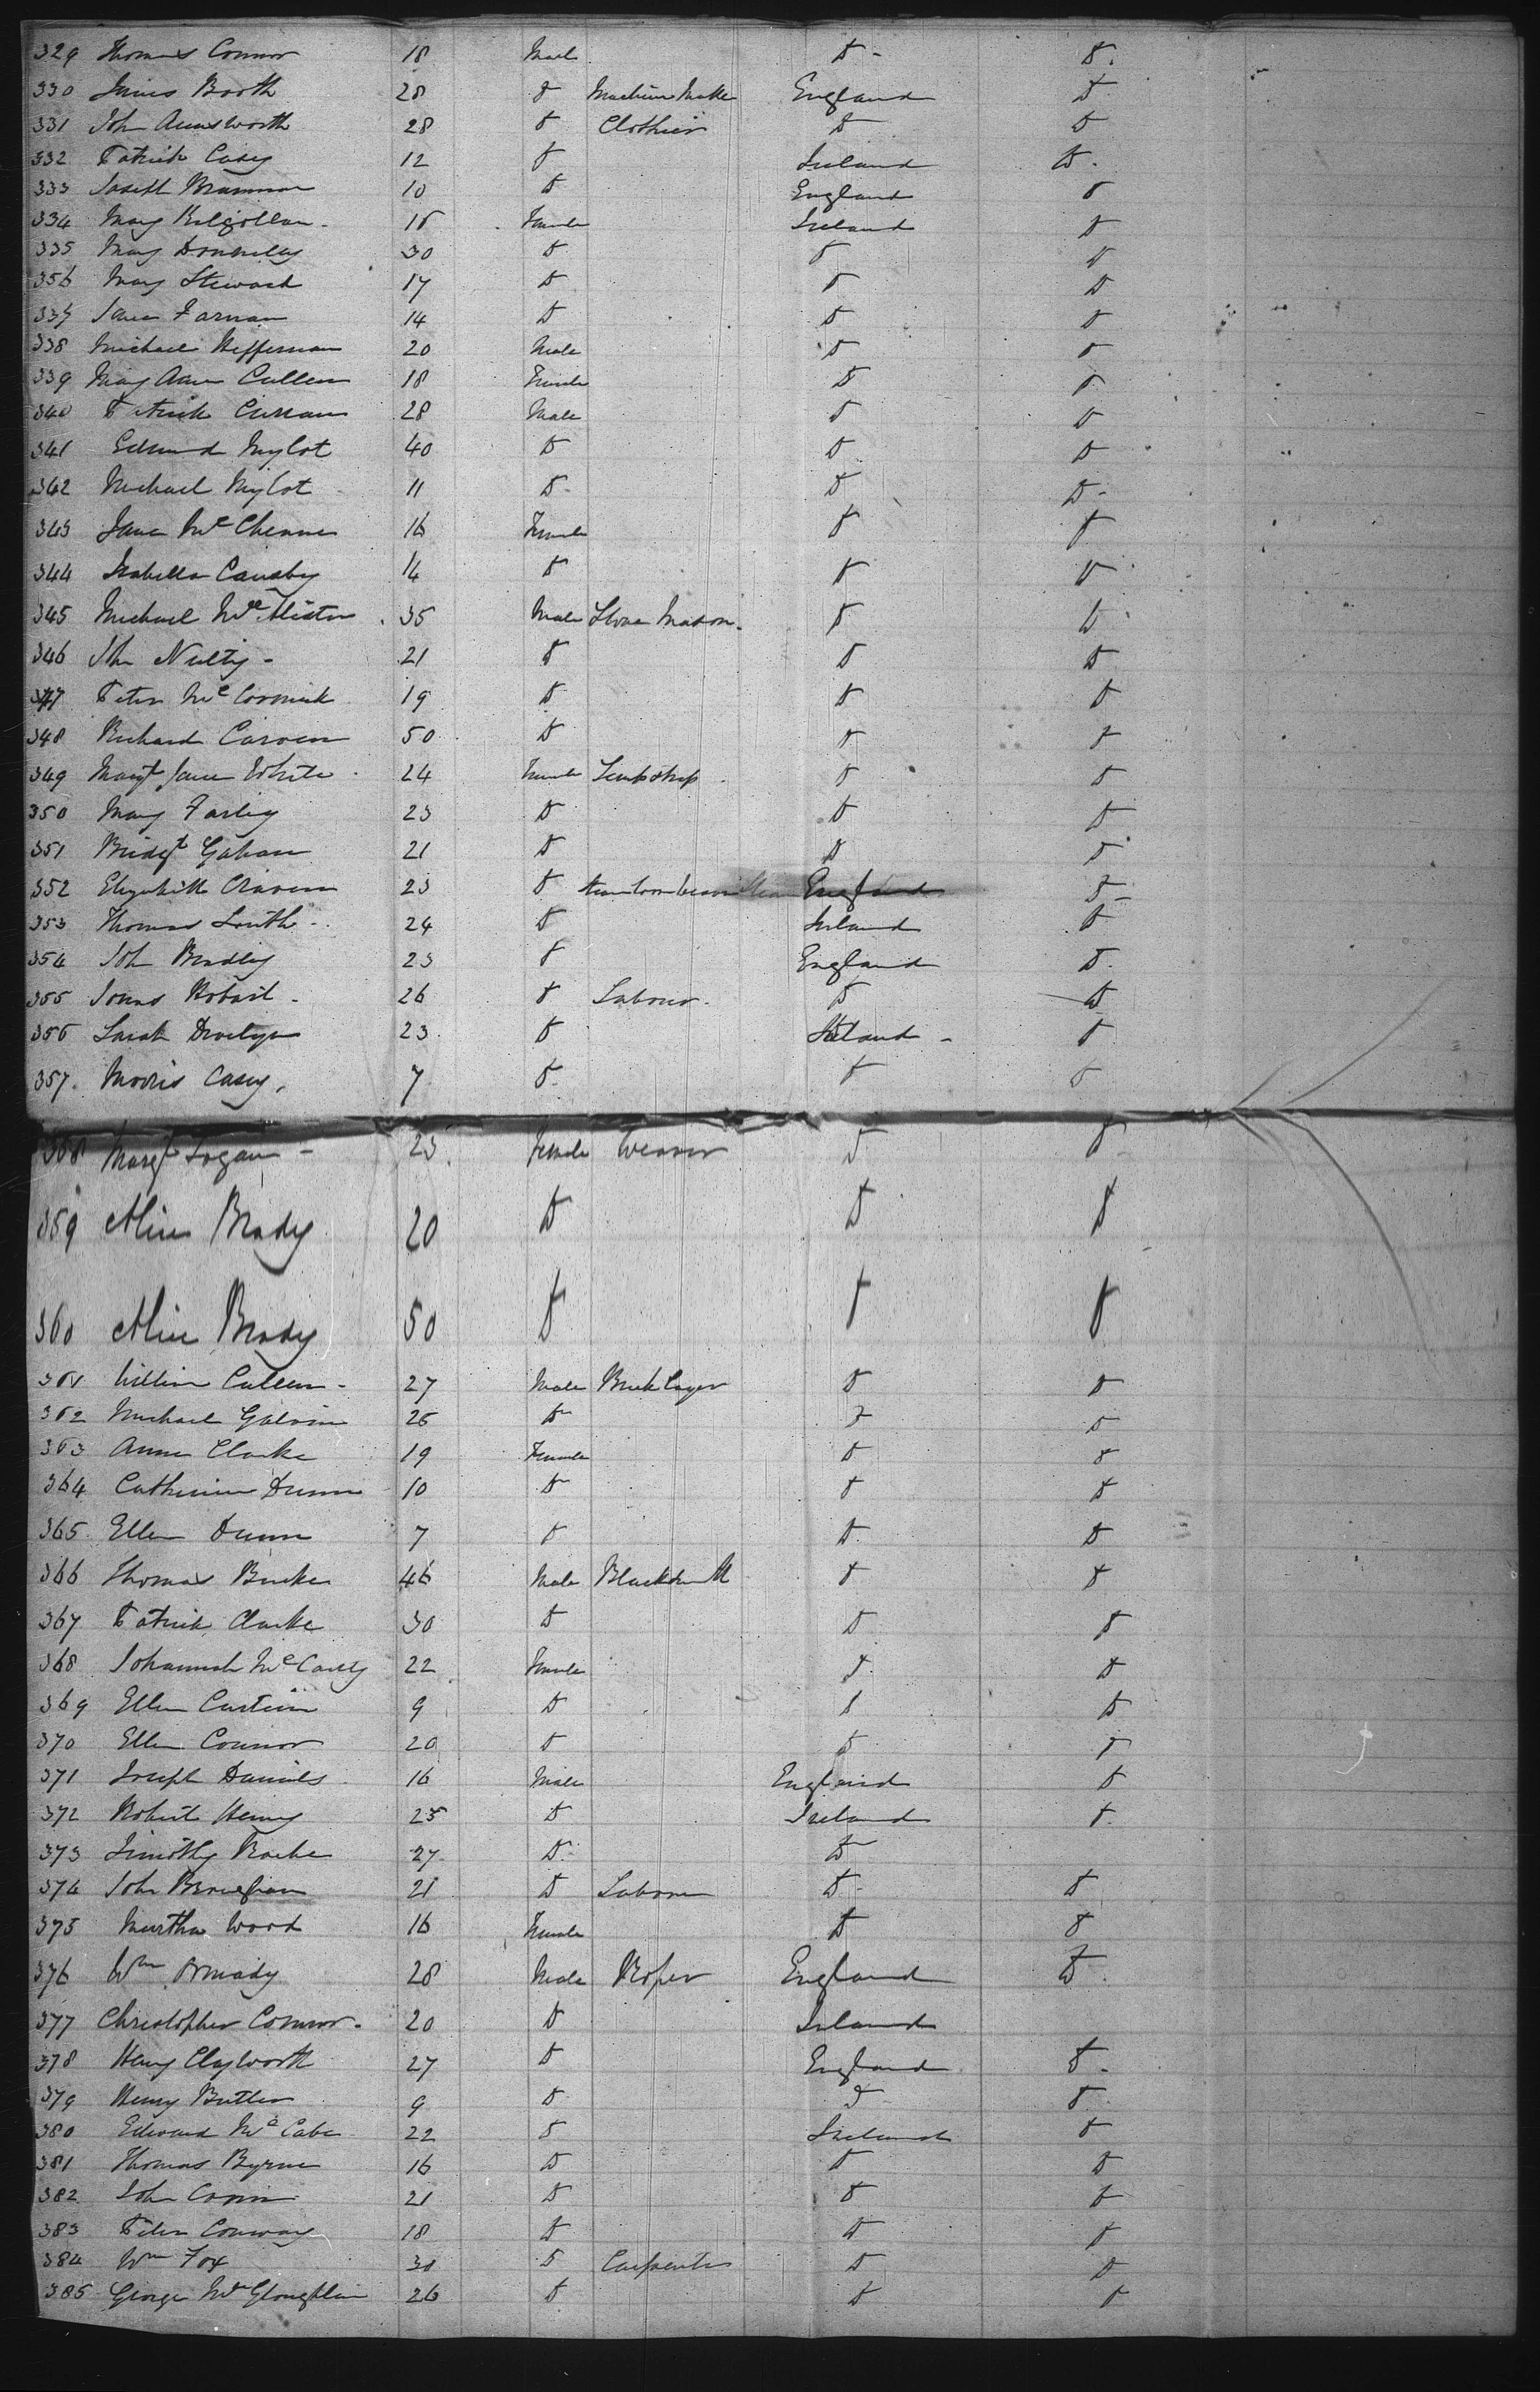 329 Thomas Connor 18 Male D - D.
330 James Booth 28 D Machine Make England D
331 John Ainsworth 28 D Clothier D D
332 Patrick Casey 12 D Ireland D.
333 Joseph 10 D England D
334 Mary 16 Female Ireland D
335 Mary Donnelly 30 D D D
336 Mary Steward 17 D D D
337 Jane Farnan 14 D D D
338 Michael Heffernan 20 Male D D
339 Mary Ann Cullen 18 Female D D
340 Patrick Curran 28 Male D D
341 Edmund Mylot 40 D D D
342 Michael Mylot 11 D D D
343 Jane 16 Female D D
344 Isabella 14 D D D
345 Michael 35 Male Stone Mason D D
346 John Nulty - 21 D D D
347 Peter McCormick 19 D D D
348 Richard 50 D D D
349 Margt Jane White 24 Female D D
350 Mary Farley 23 D D D
351 Bridgt Gahan 21 D D D
352 Elizabeth Craven 23 D England D
353 Thomas 24 D Ireland D
354 John Bradley 23 D England D
355 Jonas 26 D Labour D D
356 Sarah 23 D Ireland - D
357. Morris Casey. 7 D D D
358 Margt Logan - 25 Female Weaver D D
359 Alice Brady 20 D D D
360 Alice Brady 50 D D D
361 William Cullen - 27 Male Bricklayer D D
362 Michael Galvin 26 D D D
363 Anne Clarke 19 Female D D
364 Catherine Dunn 10 D D D
365 Ellen Dunn 7 D D D
366 Thomas Burke 46 Male Blacksmith D D
367 Patrick Clarke 30 D D D
368 Johannah McCarty 22 Female D D
369 Ellen Curtain 9 D D D
370 Ellen Connor 20 D D D
371 Joseph Daniels 16 Male England D
372 Robert Henry 25 D Ireland D
373 Timothy Roche 27 D D
374 John 21 D Labour D D
375 Martha Wood 16 Female D D
376 Wm Ormady 28 Male Roper England D
377 Christopher Connor - 20 D Ireland
378 Henry Clayworth 27 D England D
379 Henry Butler 9 D D D
380 Edward McCabe 22 D Ireland D
381 Thomas Byrne 16 D D D
382 John 21 D D D
383 Peter Conway 18 D D D
384 Wm Fox 30 D Carpenter D D
385 George McGloughlin 26 D D D